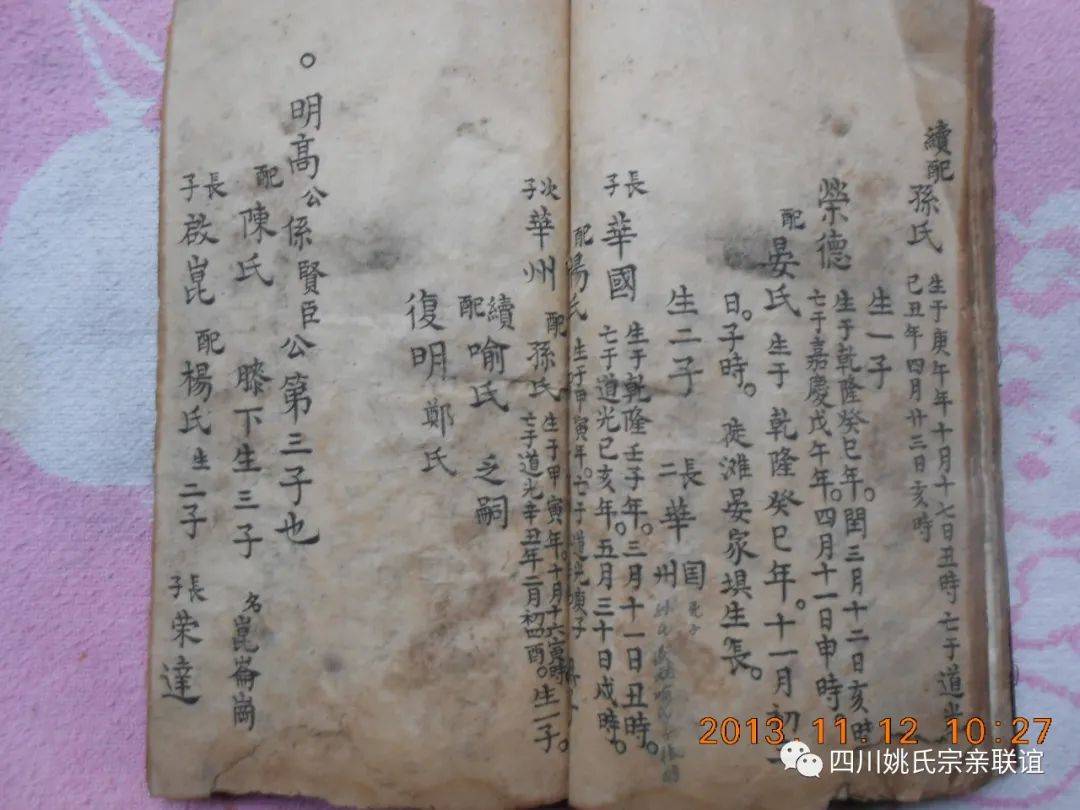 續配 孫氏 生于庚午年十月十七日丑時 亡于道光
己丑年四月廿三日亥時
生一子
榮德 生于乾隆癸巳年。閏三月十二日亥時
亡于嘉慶戊午年。四月十一日申時
配 晏氏 生于乾隆癸巳年。十一月初
日。子時。陡滩晏家埧生長。
生二子 長華国 二華州
長子 華國 生于乾隆壬子年。三月十一日丑時。
亡于道光已亥年。五月三十日戍時。
配 楊氏 生于甲寅年。亡于道光
次子 華州 配 孫氏 生于甲寅年。十月十六寅時
亡于道光辛丑年二月初四酉。生一子。
續配 喻氏 乏嗣
復明 鄭氏
。明高公係賢臣公第三子也
配 陳氏 膝下生三子 名崑崙崗
長子 啟崑 配 楊氏 生二子 長子 荣達
2013.11.12 10:27
四川姚氏宗亲联谊